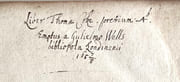 Liber Thomæ Cox. pretium
Emptus a Gulielmo Wells
bibliopola Londinensi